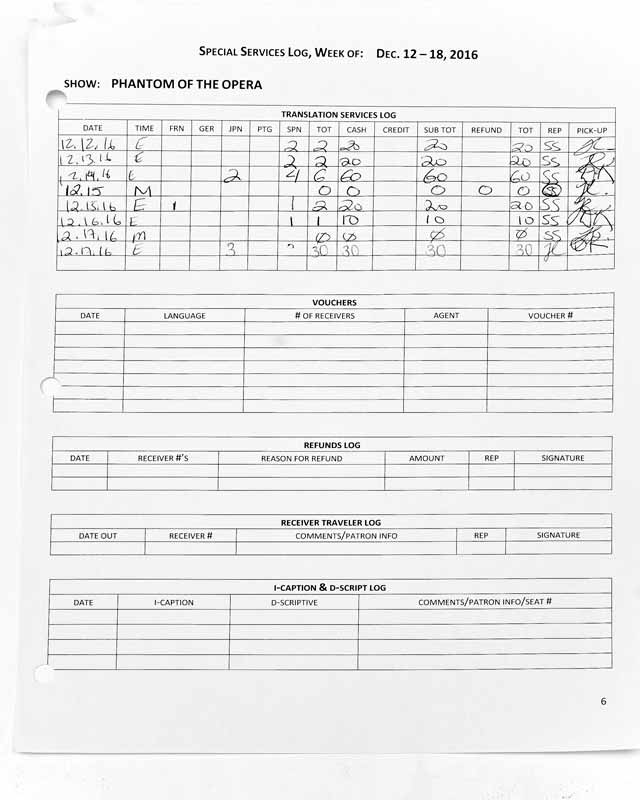 SPECIAL SERVICES LOG, WEEK OF: DEC. 12 – 18, 2016
SHOW: PHANTOM OF THE OPERA
TRANSLATION SERVICES LOG
DATE TIME FRN GER JPN PTG SPN TOT CASH CREDIT SUB TOT REFUND TOT REP PICK-UP
12.12.16 E 2 2 20 20 20 SS
12.13.16 E 2 2 20 20 20 SS
12.14.16 E 2 4 6 60 60 60 SS
12.15 M 0 0 0 0 0 SS
12.15.16 E 1 1 2 20 20 20 SS
12.16.16 E 1 1 10 10 10 SS
2.17.16 M Ø Ø Ø Ø SS
12.17.16 E 3 30 30 30 30
VOUCHERS
DATE LANGUAGE # OF RECEIVERS AGENT VOUCHER #
REFUNDS LOG
DATE RECEIVER #'S REASON FOR REFUND AMOUNT REP SIGNATURE
RECEIVER TRAVELER LOG
DATE OUT RECEIVER # COMMENTS/PATRON INFO REP SIGNATURE
I-CAPTION & D-SCRIPT LOG
DATE I-CAPTION D-SCRIPTIVE COMMENTS/PATRON INFO/SEAT #
6